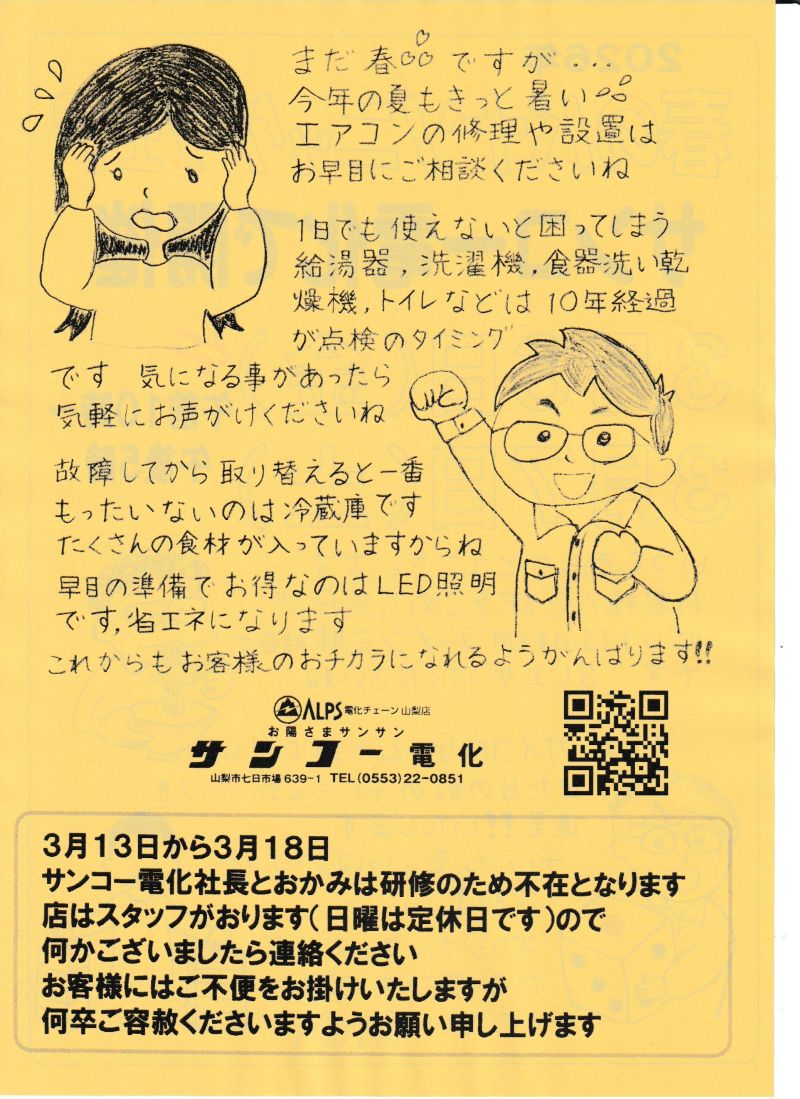 まだ春ですが...
今年の夏もきっと暑い
エアコンの修理や設置は
お早目にご相談くださいね
1日でも使えないと困ってしまう
給湯器,洗濯機,食器洗い乾
燥機,トイレなどは10年経過
が点検のタイミング
です 気になる事があったら
気軽にお声がけくださいね
故障してから取り替えると一番
もったいないのは冷蔵庫です
たくさんの食材が入っていますからね
早目の準備でお得なのはLED照明
です,省エネになります
これからもお客様のおチカラになれるようがんばります!!
ALPS電化チェーン山梨店
お陽さまサンサン
サンコー電化
山梨市七日市場639-1 TEL(0553)22-0851
3月13日から3月18日
サンコー電化社長とおかみは研修のため不在となります
店はスタッフがおります(日曜は定休日です)ので
何かございましたら連絡ください
お客様にはご不便をお掛けいたしますが
何卒ご容赦くださいますようお願い申し上げます